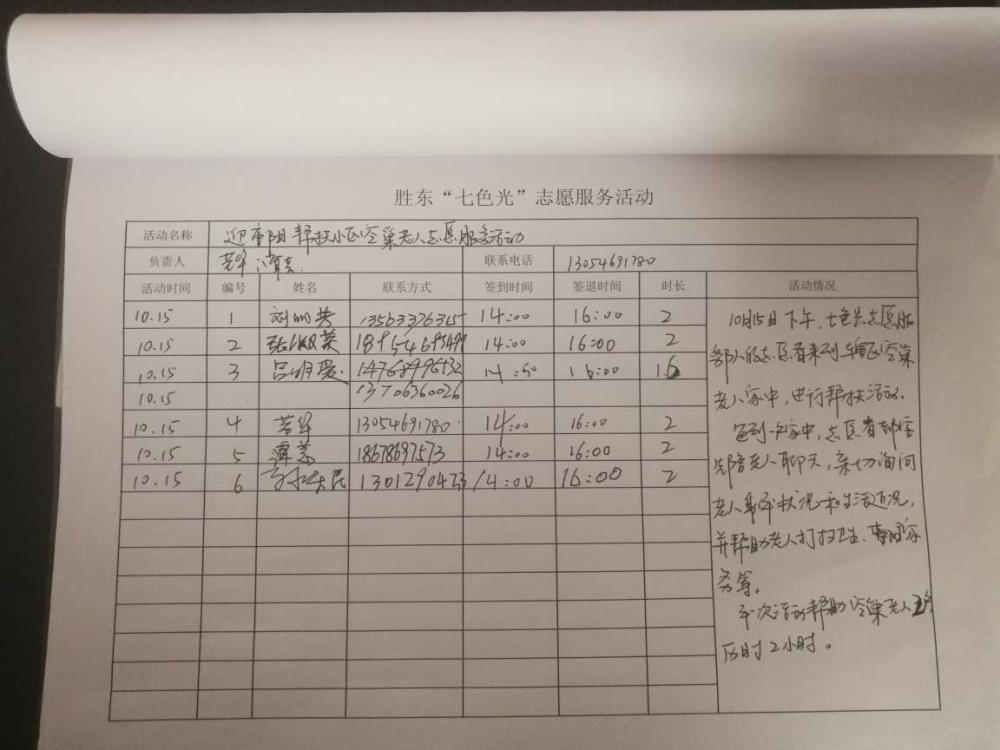 胜东“七色光”志愿服务活动
活动名称 迎重阳帮扶小区空巢老人志愿服务活动
负责人 联系电话 13054691780
活动时间 编号 姓名 联系方式 签到时间 签退时间 时长 活动情况
10.15 1 13563376315 14:00 16:00 2
10.15 2 14:00 16:00 2
10.15 3 14:50 16:00 1.6
10.15 13706360026
10.15 4 13054691780 14:00 16:00 2
10.15 5 18678697573 14:00 16:00 2
10.15 6 1301290423 14:00 16:00 2
10月15日下午,七色光志愿服
老人家中,进行帮扶活动.
每到一家中,志愿者都陪
老人聊天,亲切询问
老人身体状况和生活近况,
并帮助老人打扫卫生、
务等。
本次活动帮助空巢老人
历时2小时。